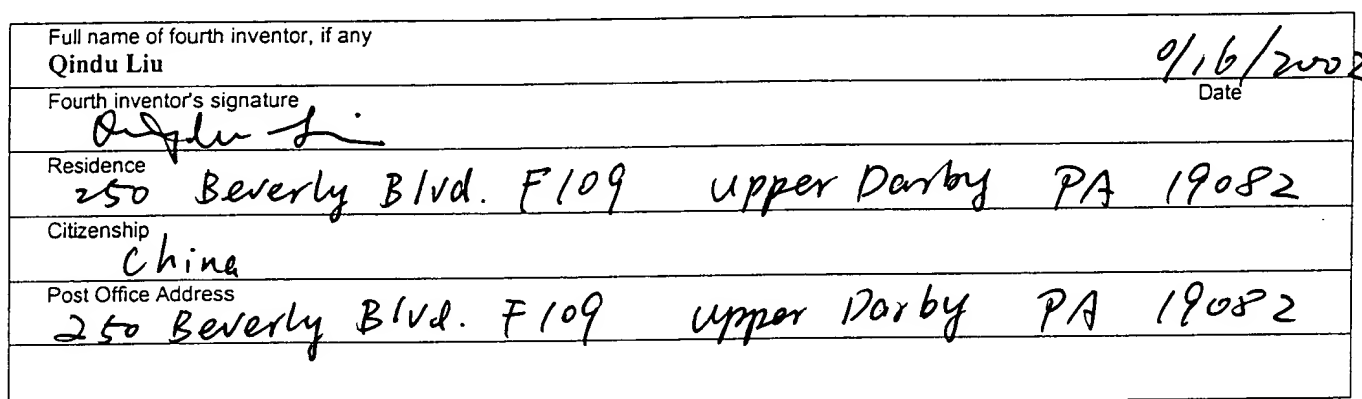 Full name of fourth inventor, if any
Qindu Liu
9/16/2002
Date
Fourth inventor's signature
Residence
250 Beverly Blvd. F109 upper Darby PA 19082
Citizenship
China
Post Office Address
250 Beverly Blvd. F109 upper Darby PA 19082